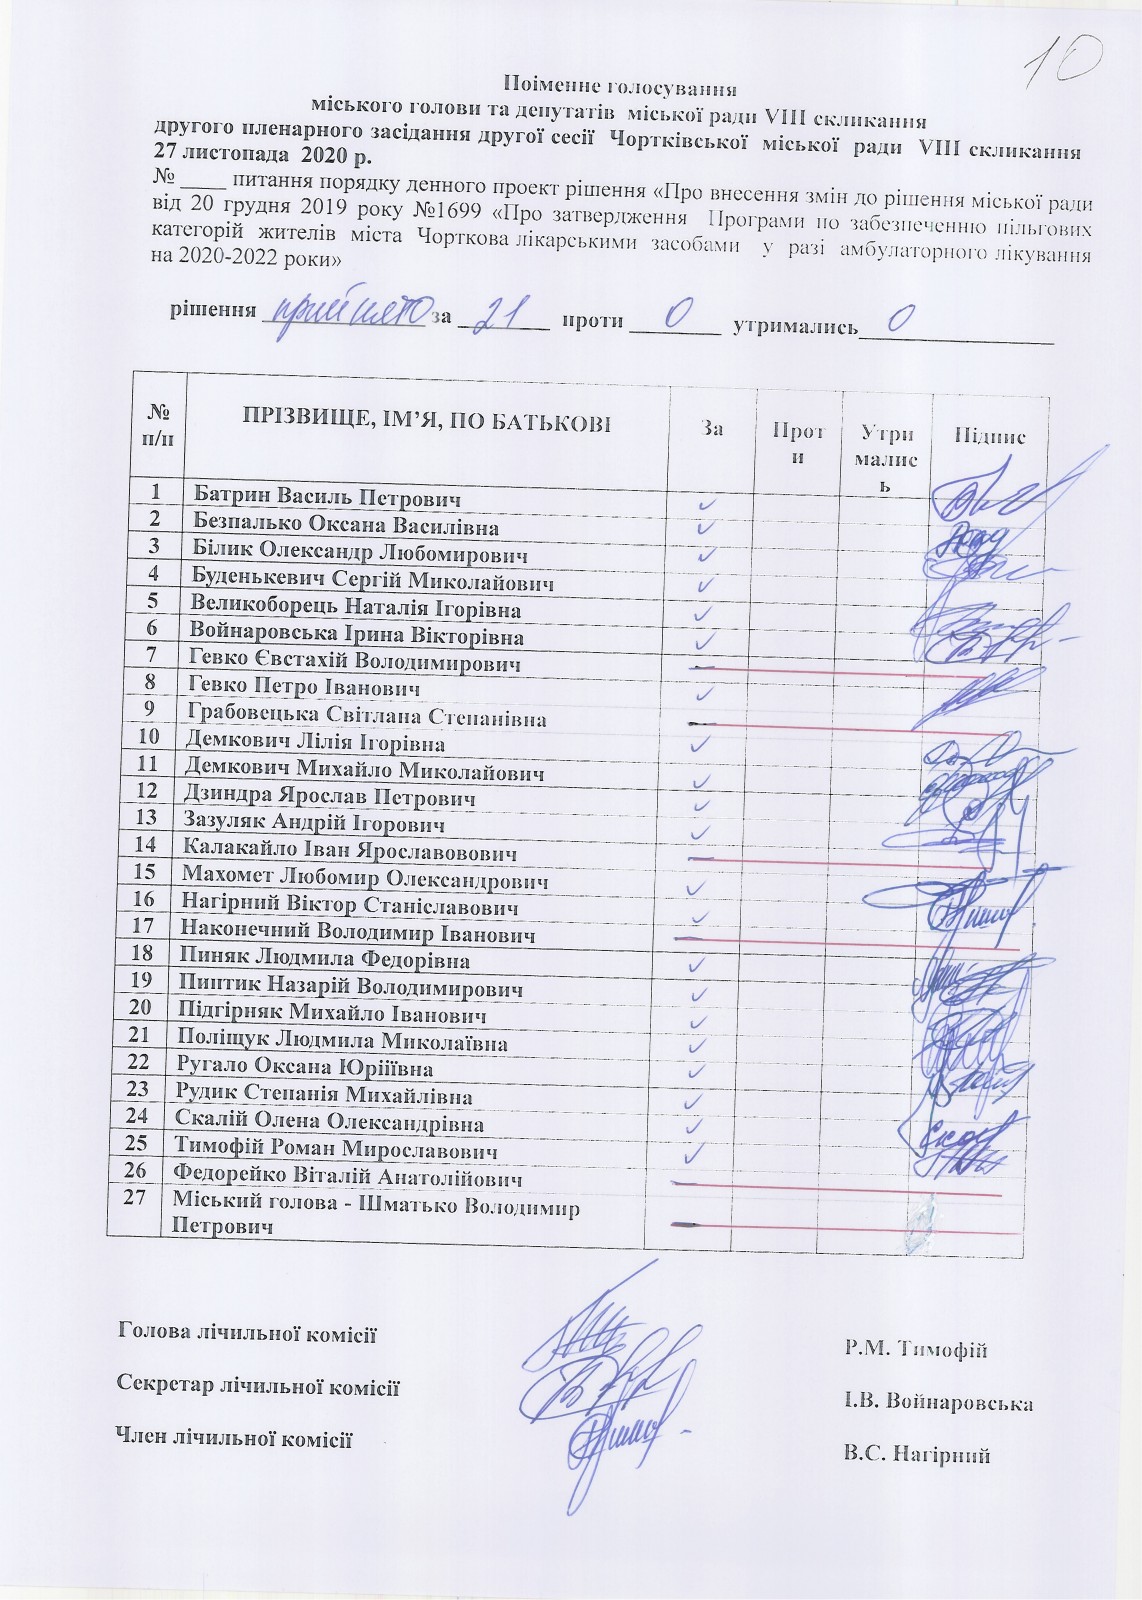 10
Поіменне голосування
міського голови та депутатів міської ради VIII скликання
другого пленарного засідання другої сесії Чортківської міської ради VIII скликання
27 листопада 2020 р.
№ ____ питання порядку денного проект рішення «Про внесення змін до рішення міської ради
від 20 грудня 2019 року №1699 «Про затвердження Програми по забезпеченню пільгових
категорій жителів міста Чорткова лікарськими засобами у разі амбулаторного лікування
на 2020-2022 роки»
рішення прийнято за 21 проти 0 утримались 0
№ п/п ПРІЗВИЩЕ, ІМ’Я, ПО БАТЬКОВІ За Прот и Утри малис ь Підпис
1 Батрин Василь Петрович ✓
2 Безпалько Оксана Василівна ✓
3 Білик Олександр Любомирович ✓
4 Буденькевич Сергій Миколайович ✓
5 Великоборець Наталія Ігорівна ✓
6 Войнаровська Ірина Вікторівна ✓
7 Гевко Євстахій Володимирович
8 Гевко Петро Іванович ✓
9 Грабовецька Світлана Степанівна
10 Демкович Лілія Ігорівна ✓
11 Демкович Михайло Миколайович ✓
12 Дзиндра Ярослав Петрович ✓
13 Зазуляк Андрій Ігорович ✓
14 Калакайло Іван Ярославовович
15 Махомет Любомир Олександрович ✓
16 Нагірний Віктор Станіславович ✓
17 Наконечний Володимир Іванович
18 Пиняк Людмила Федорівна ✓
19 Пинтик Назарій Володимирович ✓
20 Підгірняк Михайло Іванович ✓
21 Поліщук Людмила Миколаївна ✓
22 Ругало Оксана Юріїївна ✓
23 Рудик Степанія Михайлівна ✓
24 Скалій Олена Олександрівна ✓
25 Тимофій Роман Мирославович ✓
26 Федорейко Віталій Анатолійович
27 Міський голова - Шматько Володимир
Петрович
Голова лічильної комісії Р.М. Тимофій
Секретар лічильної комісії І.В. Войнаровська
Член лічильної комісії В.С. Нагірний